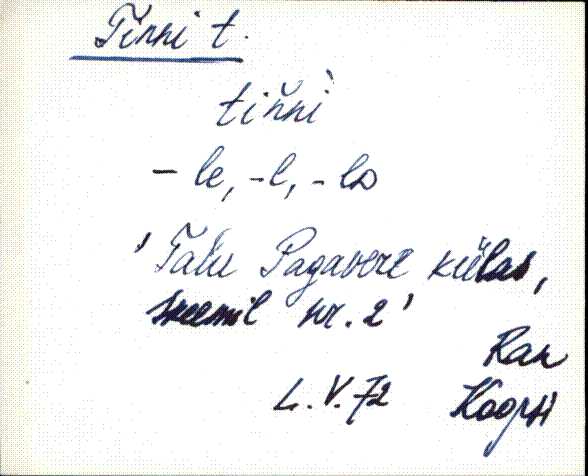 Tinni t.
tiňnì
- le, -l, -lD
'Talu Pagavere külas,
skeemil nr. 2'
Ran
L.V.72 Koopti